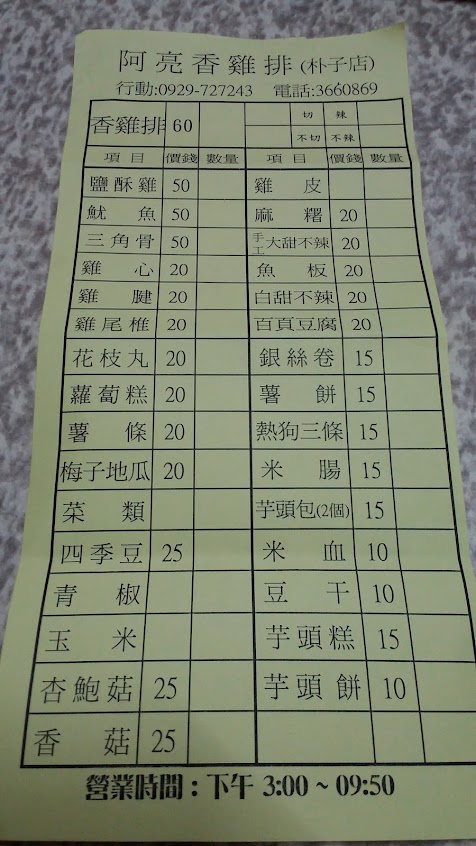 阿亮香雞排(朴子店)
行動:0929-727243 電話:3660869
香雞排 60 切 辣
不切 不辣
項目 價錢 數量 項目 價錢 數量
鹽酥雞 50 雞皮
魷魚 50 麻糬 20
三角骨 50 手工大甜不辣 20
雞心 20 魚板 20
雞腱 20 白甜不辣 20
雞尾椎 20 百頁豆腐 20
花枝丸 20 銀絲卷 15
蘿蔔糕 20 薯餅 15
薯條 20 熱狗三條 15
梅子地瓜 20 米腸 15
菜類 芋頭包(2個) 15
四季豆 25 米血 10
青椒 豆干 10
玉米 芋頭糕 15
杏鮑菇 25 芋頭餅 10
香菇 25
營業時間:下午 3:00 ~ 09:50